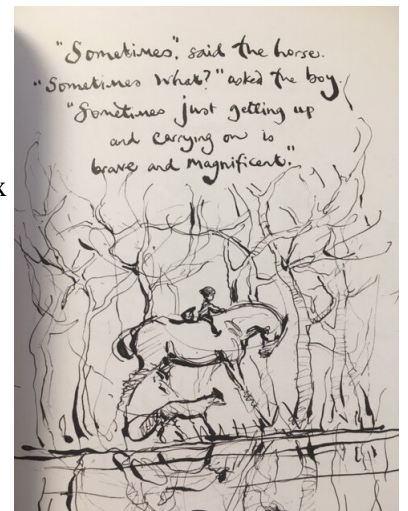 "Sometimes", said the horse.
"Sometimes What?" asked the boy.
"Sometimes just getting up
and carrying on is
brave and magnificent."
x